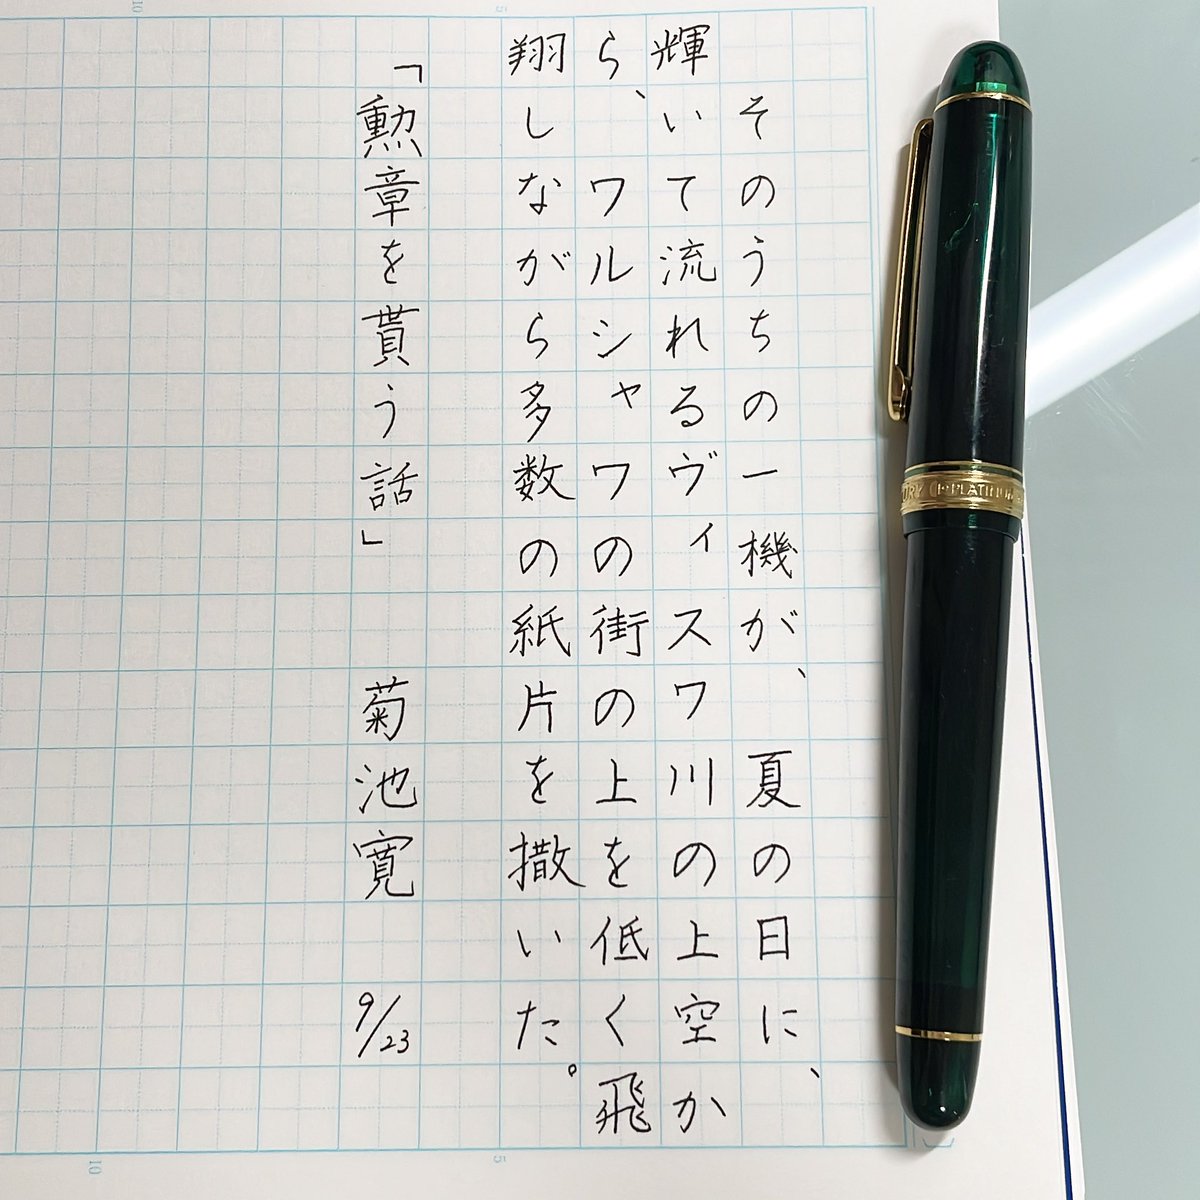 そのうちの一機が、夏の日に、
輝いて流れるヴィスワ川の上空か
ら、ワルシャワの街の上を低く飛
翔しながら多数の紙片を撒いた。
「勲章を貰う話」 菊池寛 9/23
PLATINUM
10
5
10
5